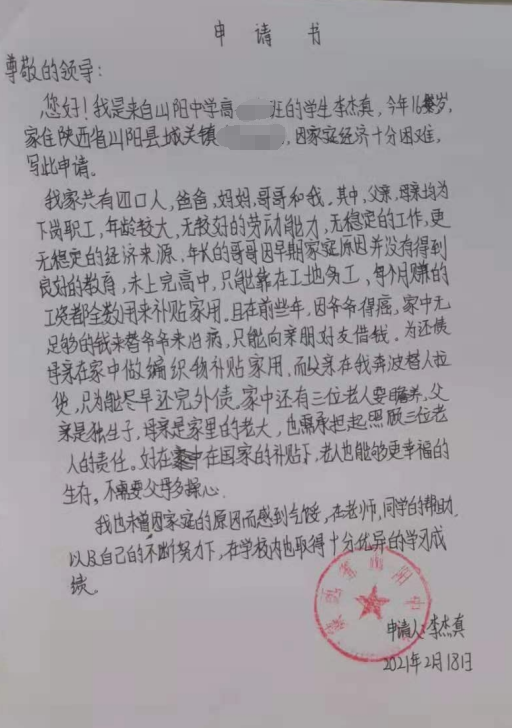 申请书
尊敬的领导:
您好!我是来自山阳中学高 班的学生李杰真,今年16岁,
家住陕西省山阳县城关镇 ,因家庭经济十分困难,
写此申请。
我家共有四口人,爸爸,妈妈,哥哥和我。其中,父亲,母亲均为
下岗职工,年龄较大,无较好的劳动能力,无稳定的工作,更
无稳定的经济来源,年长的哥哥因早期家庭原因并没有得到
良好的教育,未上完高中,只能靠在工地务工,每个月赚的
工资都全数用来补贴家用。且在前些年,因爷爷得癌,家中无
足够的钱来替爷爷来治病,只能向亲朋好友借钱。为还债
母亲在家中做编织物补贴家用,而父亲在我奔波替人拉
货,只为能尽早还完外债。家中还有三位老人要赡养,父
亲是独生子,母亲是家里的老大,也需承担起照顾三位老
人的责任。好在在国家的补贴下,老人也能够更幸福的
生存,不需要父母多操心。
我也未曾因家庭的原因而感到气馁,在老师,同学的帮助
以及自己的不断努力下,在学校内也取得十分优异的学习成
绩。
陕西省山阳中
申请人:李杰真
2021年2月18日